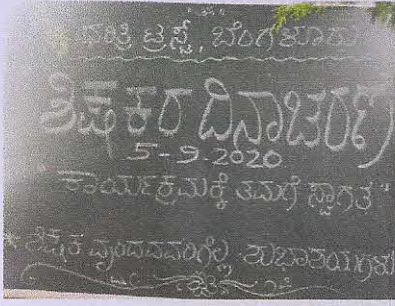 ಧರಿತ್ರಿ ಟ್ರಸ್ಟ್, ಬೆಂಗಳೂರು
ಶಿಕ್ಷಕರ ದಿನಾಚರಣೆ
5-9-2020
ಕಾರ್ಯಕ್ರಮಕ್ಕೆ ತಮಗೆ ಸ್ವಾಗತ
ಶಿಕ್ಷಕ ವೃಂದದವರಿಗೆಲ್ಲ ಶುಭಾಶಯಗಳು